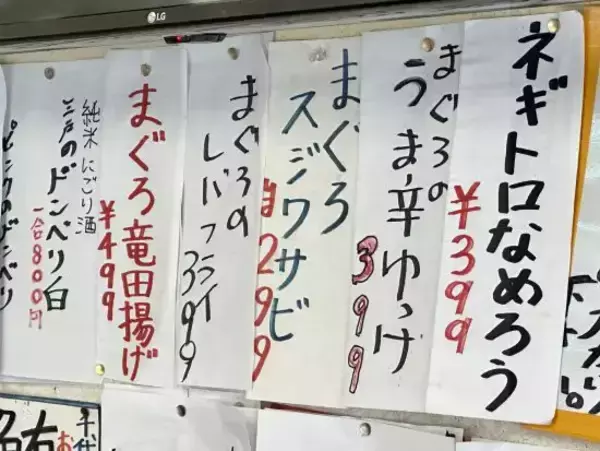 LG
ネギトロなめろう
¥399
まぐろの
うま辛ゆっけ
399
まぐろ
スジワサビ
¥299
まぐろの
レバフライ
399
まぐろ竜田揚げ
¥499
純米にごり酒
三戸のドンペリ白
一合800円
ピンクのドンペリ
千代